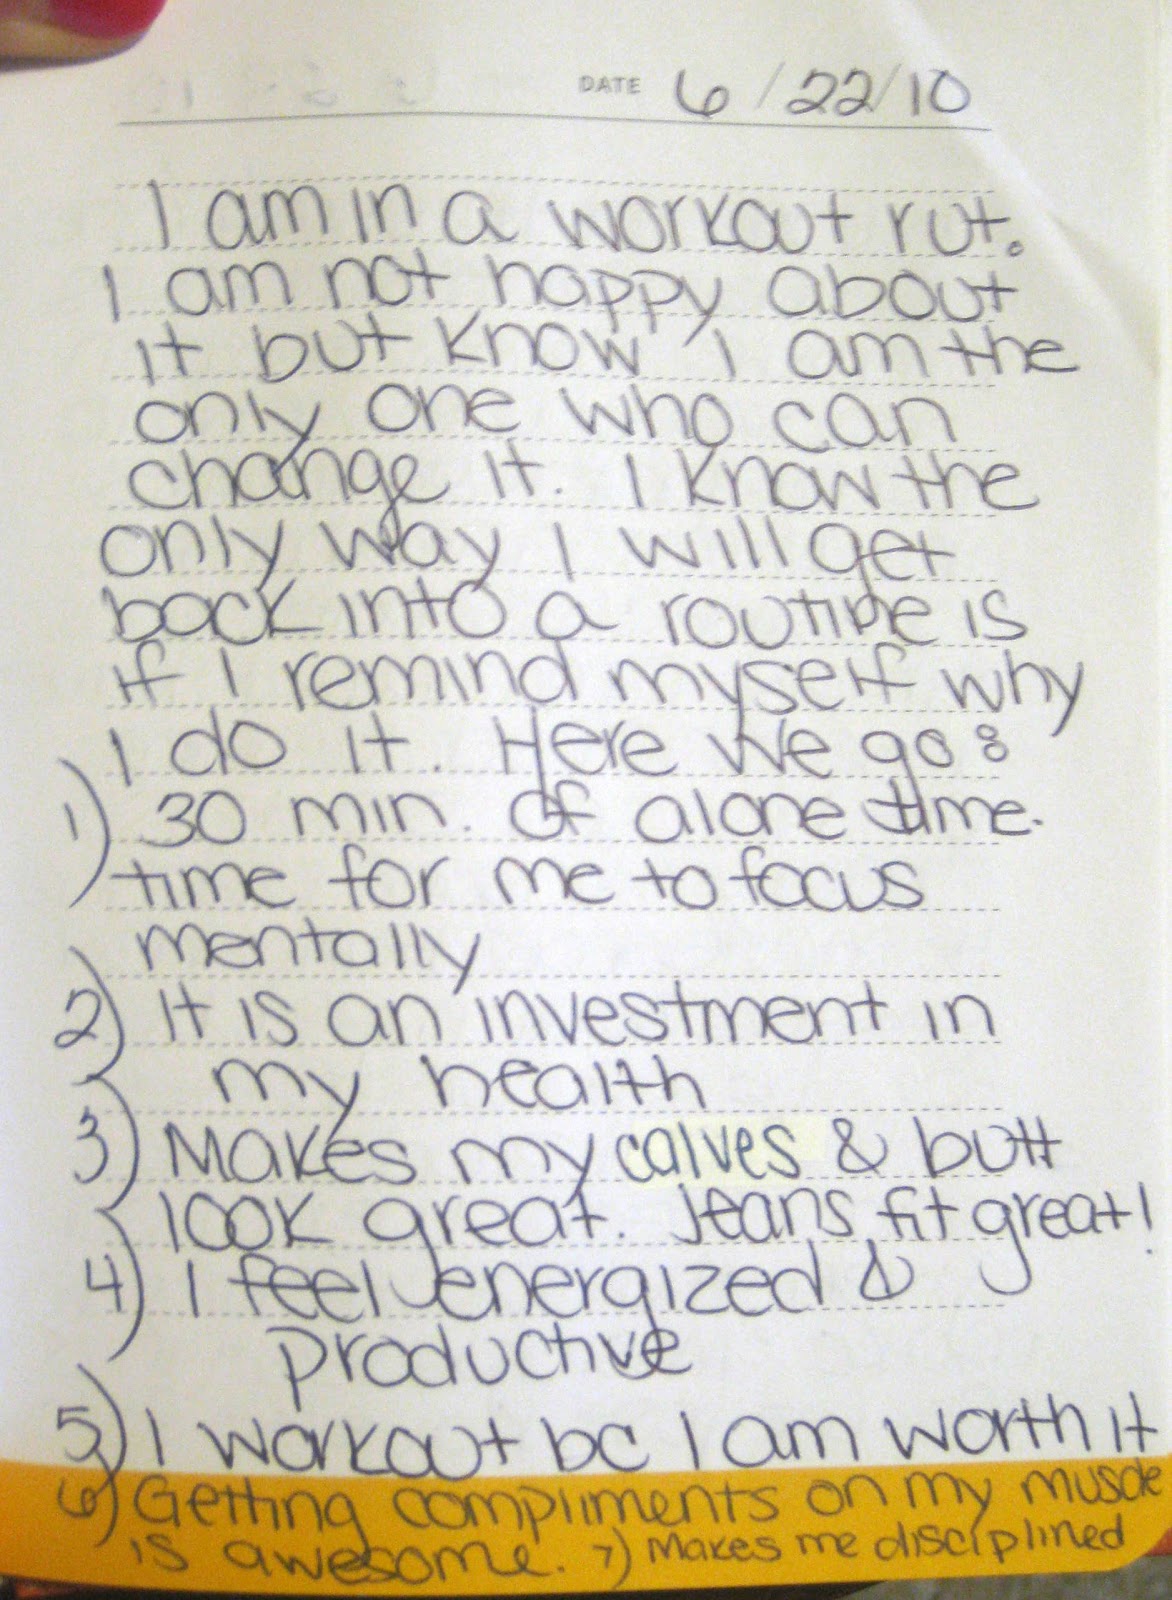 DATE 6/22/10
I am in a workout rut.
I am not happy about
it but know I am the
only one who can
change it. I know the
only way I will get
back into a routine is
if I remind myself why
I do it. Here we go:
1) 30 min. of alone time.
time for me to focus
mentally
2) It is an investment in
my health
3) Makes my calves & butt
look great. Jeans fit great!
4) I feel energized &
productive
5) I workout bc I am worth it
6) Getting compliments on my muscle
is awesome. 7) Makes me disciplined